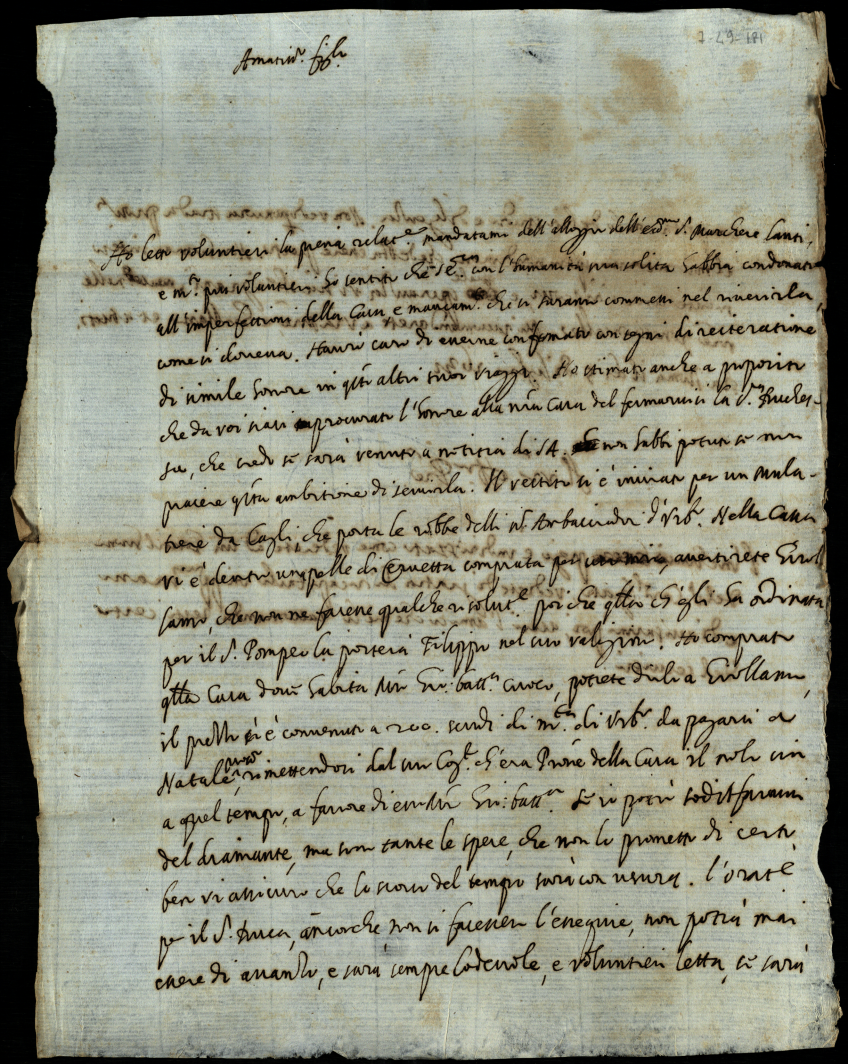 7-29-181
Amatiss.r figlo
Ho letto voluntieri la piena relat.e mandatami dell'alloggio dell'ecc.mo S. Marchese Lanti,
e m.o più voluntieri ho sentito che S.E. con l'humanità sua solita habbia condonato
all'imperfettioni della Casa e mancam.ti che si saranno commessi nel riverirla,
come si doveva. Havrò caro di esserne confirmato con segni di reiteratione
di simile honore in q.sti altri suoi viaggi. Ho stimato anche a proposito
che da voi siasi procurato l'honore alla n.ra Casa del fermarvisi la S.ra Duches-
sa, che credo se sarà venuto a notitia di S.A. non habbi potuto se non
piacere q.sta ambitione di servirla. Il vestito si è inviato per un mula-
tiere da Cagli, che porta le robbe delli ss.ri Ambasciadori d'Urb.o. Nella Cassa
vi è dentro una pelle di comprata per avertirete Girol
lamo, che non ne facesse qualche risolut.e poi che q.lla ch'egli ha ordinata
per il S. Pompeo la porterà Filippo nel suo valigino. Ho comprato
q.lla Casa dove habita M.ro Gio: batt.a cuoco, potrete dirlo a Girollamo,
il prezzo si è convenuto a 200. scudi di m.ta di Urb.o da pagarsi a
Natale pross.o, rimettendosi dal suo Cog.to ch'era P'rone della Casa il nolo sin
a quel tempo, a favore di esso M.ro Gio: batt.a. Se io potrò sodisfarvi
del diamante, ma sono tante le spese, che non lo prometto di certo
ben vi assicuro che lo scorso del tempo sarà con usura. l'orat.e
per il S. Duca, ancorche non si facessero l'essequie, non potrà mai
essere di avanzo, e sarà sempre lodevole, e voluntieri letta, se sarà